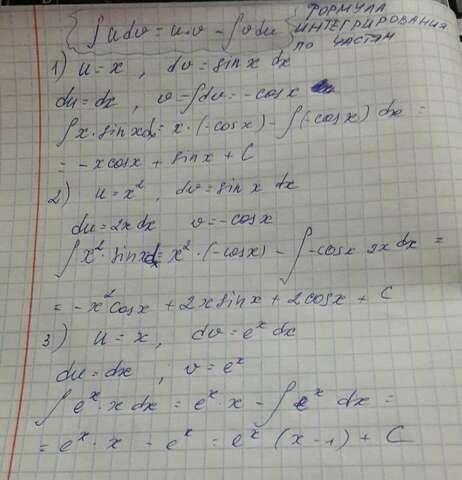 ∫udv = u·v − ∫vdu
ФОРМУЛА
ИНТЕГРИРОВАНИЯ
ПО ЧАСТЯМ
1) u = x , dv = sinx dx
du = dx , v = ∫dv = −cosx
∫x·sinxdx = x·(−cosx) − ∫(−cosx) dx =
= −xcosx + sinx + C
2) u = x² , dv = sinx dx
du = 2xdx v = −cosx
∫x²·sinxdx = x²·(−cosx) − ∫−cosx 2x dx =
= −x²cosx + 2xsinx + 2cosx + C
3) u = x , dv = eˣdx
du = dx ; v = eˣ
∫eˣ·x dx = eˣ·x − ∫eˣ dx =
= eˣ·x − eˣ = eˣ (x−1) + C